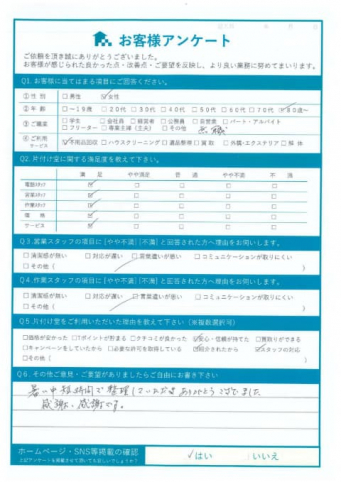 お客様アンケート
ご依頼を頂き誠にありがとうございました。
お客様が感じられた良かった点・改善点・ご要望を反映し、より良い業務に努めてまいります。
Q1. お客様に当てはまる項目にご回答ください。
① 性 別 □ 男性 ☑ 女性
② 年 齢 □ ~19歳 □ 20代 □ 30代 □ 40代 □ 50代 □ 60代 □ 70代 ☑ 80歳~
③ ご職業 □ 学生 □ 会社員 □ 経営者 □ 公務員 □ 自営業 □ パート・アルバイト
□ フリーター □ 専業主婦（主夫） □ その他 無職
④ ご利用サービス ☑ 不用品回収 □ ハウスクリーニング □ 遺品整理 □ 買取 □ 外構・エクステリア □ 解体
Q2. 片付け堂に関する満足度を教えて下さい。
満 足 やや満足 普 通 やや不満 不 満
電話スタッフ ☑ □ □ □ □
営業スタッフ ☑ □ □ □ □
作業スタッフ ☑ □ □ □ □
価 格 ☑ □ □ □ □
サービス ☑ □ □ □ □
Q3. 営業スタッフの項目に [やや不満] [不満] と回答された方へ理由をお伺いします。
□ 清潔感が無い □ 対応が遅い □ 言葉遣いが悪い □ コミュニケーションが取りにくい
□ その他（ ）
Q4. 作業スタッフの項目に [やや不満] [不満] と回答された方へ理由をお伺いします。
□ 清潔感が無い □ 対応が遅い □ 言葉遣いが悪い □ コミュニケーションが取りにくい
□ その他（ ）
Q5. 片付け堂をご利用いただいた理由を教えて下さい（※複数選択可）
□ 価格が安かった □ Tポイントが貯まる □ クチコミが良かった ☑ 安心・信頼が持てた □ 買取りができる
□ キャンペーンをしていたから □ 必要な許可を取得している ☑ 紹介されたから ☑ スタッフの対応
□ その他（ ）
Q6. その他ご意見・ご要望がありましたらご自由にお書き下さい
暑い中 短時間で整理していただきありがとうございました
感謝、感謝です。
ホームページ・SNS等掲載の確認
✓はい いいえ